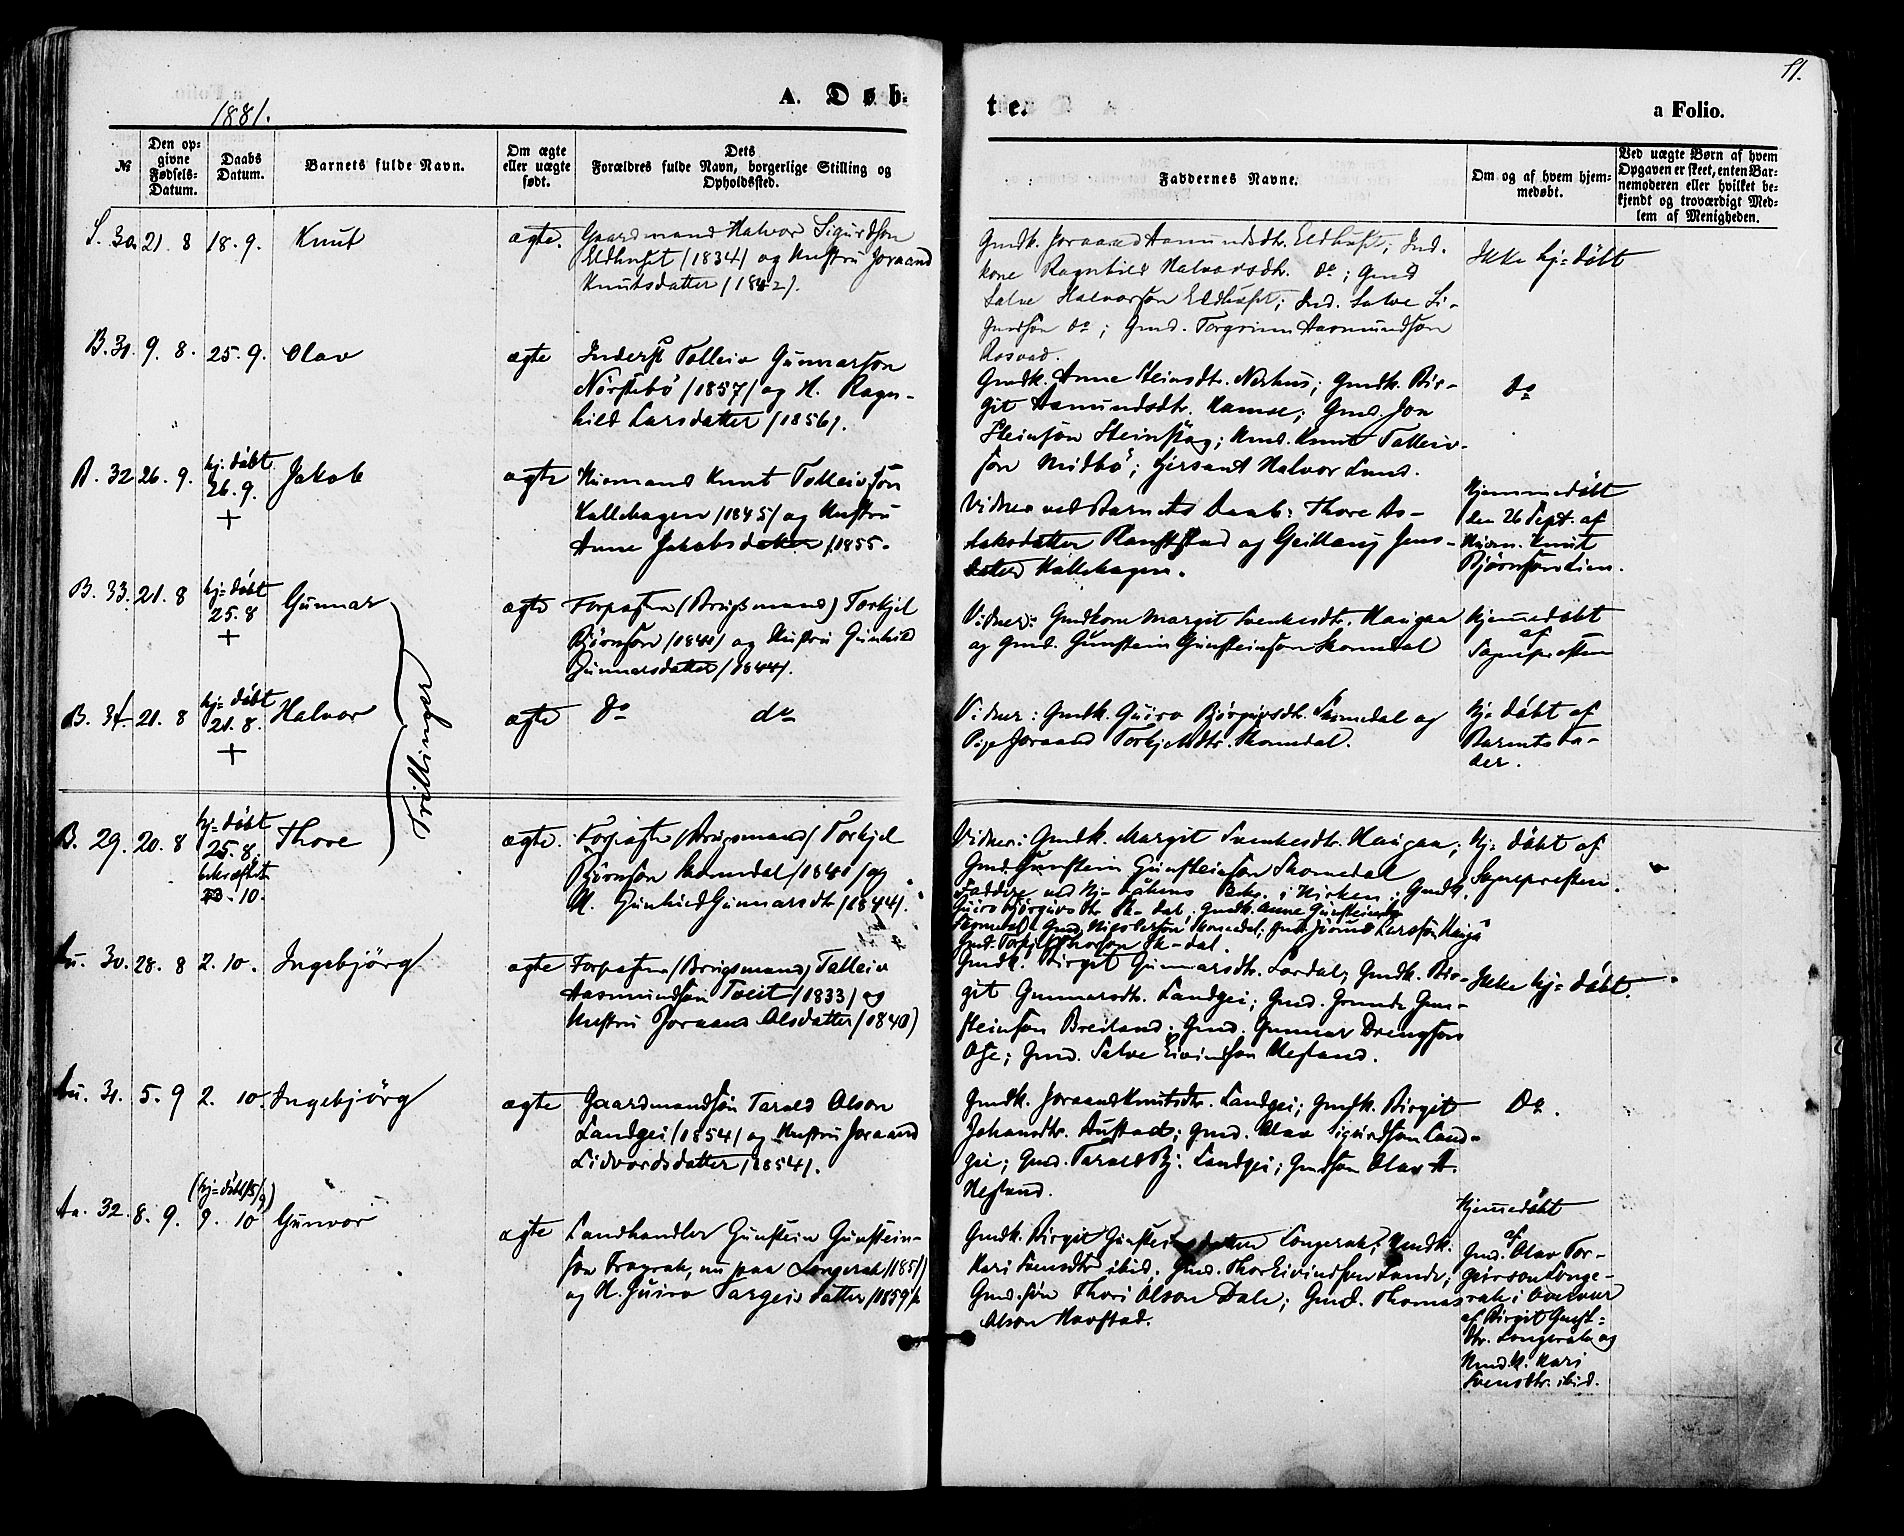 11.
1881.
A. Døb-
te.
a Folio.
№
Den op-
givne
Fødsels-
Datum.
Daabs
Datum.
Barnets fulde Navn.
Om ægte
eller uægte
født.
Dets
Forældres fulde Navn, borgerlige Stilling og
Opholdssted.
Faddernes Navne.
Om og af hvem hjem-
medøbt.
Ved uægte Børn af hvem
Opgaven er skeet, enten Bar-
nemoderen eller hvilket be-
kjendt og troværdigt Med-
lem af Menigheden.
S. 30. 21. 8 18. 9. Knut ægte.
Gaardmand Halvor Sigurdsøn
Eldhuset (1834) og Hustru Joraand
Knutsdatter (1842).
Gmdk. Joraand Aamundsdtr. Eldhuset; Ind.
kone Ragnhild Halvorsdtr. do; Gmd
Salve Halvorsøn Eldhuset; Ind. Salve Si-
gurdsøn do; Gmd. Torgrim Aasmundsøn
Rosvad.
Ikke hj=døbt
B. 31. 9. 8. 25. 9. Olav ægte
Inderst Talleiv Gunnarsøn
Nørstebø (1857) og H. Ragn-
hild Larsdatter (1856).
Gmdk. Anne Steinsdtr. Nærhus; Gmdk. Bir-
git Aamundsdtr. Hamse; Gmd. Jon
Steinsøn Steinslag; Hmd. Knut Talleiv-
søn Midbø; Gersant Halvor Lund.
do
B. 32 26. 9. hj=døbt
26. 9.
+
Jakob ægte
Huusmand Knut Talleivsøn
Kallehagen (1845) og Hustru
Anne Jakobsdatter (1855.
Vidner ved Barnets Daab: Thore As-
laksdatter og Jens-
datter Kallehagen.
Hjemmedøbt
den 26 Sept. af
Huusm. Knut
Bjørnsøn Lien.
B. 33. 21. 8 hj=døbt
25. 8
+
Gunnar ægte
Forpagter (Brugsmand) Torkjel
Bjørnsøn (1841) og Hustru Gunhild
Gunnarsdatter (1844).
Vidner: Gmdkone Margit Svenkesdtr. Haugaa
og Gmd. Gunstein Gunsteinsøn Skomedal
Hjemmedøbt
af
Sognepresten
B. 34. 21. 8 hj=døbt
21. 8.
+
Halvor ægte do do
Vidner: Gmdk. Guiro Bjørgivsdtr. Skomedal og
Pige Joraand Torkjelsdtr. Skomedal.
hj=døbt af
Barnets Fa-
der.
Trillinger
B. 29. 20. 8 hj=døbt
25. 8.
bekræftet
23. 10.
Thore ægte.
Forpagter (Brugsmand) Torkjel
Bjørnsøn Skomedal (1841) og
H. Gunhild Gunnarsdtr. (1844).
Vidner: Gmdk. Margit Svenkesdtr. Haugaa;
Gmd. Gunstein Gunsteinsøn Skomedal
Faddere ved Hj-døbens Bekr. i Kirken: Gmdk.
Guiro Bjørgivsdtr. Sk-dal; Gmdk. Anne Gunsteinsdtr
Skomedal; Larssøn Haugå
Sk-dal.
Hj=døbt af
Sognepresten.
Au. 30. 28. 8 2. 10. Ingebjörg ægte
Forpagter (Brugsmand) Talleiv
Aasmundsøn Tveit (1833) og
Hustru Joraand Olsdatter (1840)
Gmdk. Birgit Gunnarsdtr. Lordal; Gmdk. Bir-
git Gunnarsdtr. Landgei; Gmd. Grunde Gun-
steinsøn Breiland; Gmd. Gunnar Drengsøn
Ose; Gmd. Salve Eivindsøn Hesland.
Ikke hj=døbt.
Au. 31. 5. 9 2. 10. Ingebjörg ægte
Gaardmandsøn Tarald Olson
Landgei (1854) og Hustru Joraand
Lidvordsdatter (1854).
Gmdk. Joraand Knutsdtr. Landgei; Gmdk. Birgit
Johansdtr. Austad; Gmd. Olav Sigurdsøn Land-
gei; Gmd. Tarald Bj. Landgei; Gmdsøn Olav A.
Hesland.
Do.
Au. 32. 8. 9. (hj=døbt 15/9)
9. 10 Gunvor ægte
Landhandler Gunstein Gunstein-
søn Frøyrak, nu paa Longerak (1851)
og H. Guiro Targeisdatter (1859).
Gmdk. Birgit Gunsteinsdatter Longerak; Hmdk.
Kari Svensdtr ibid; Gmd. Thor Eivindsøn Lande;
Gmd.søn Thori Olson Dale; Gmd. Thomas
Olson Harstad.
Hjemmedøbt
af
Gmd. Olav Tor-
geirson Longe-
rak i Overvær
af Birgit Gunst-
dtr. Longerak og
Hmd.k. Kari
Svensdtr. ibid.